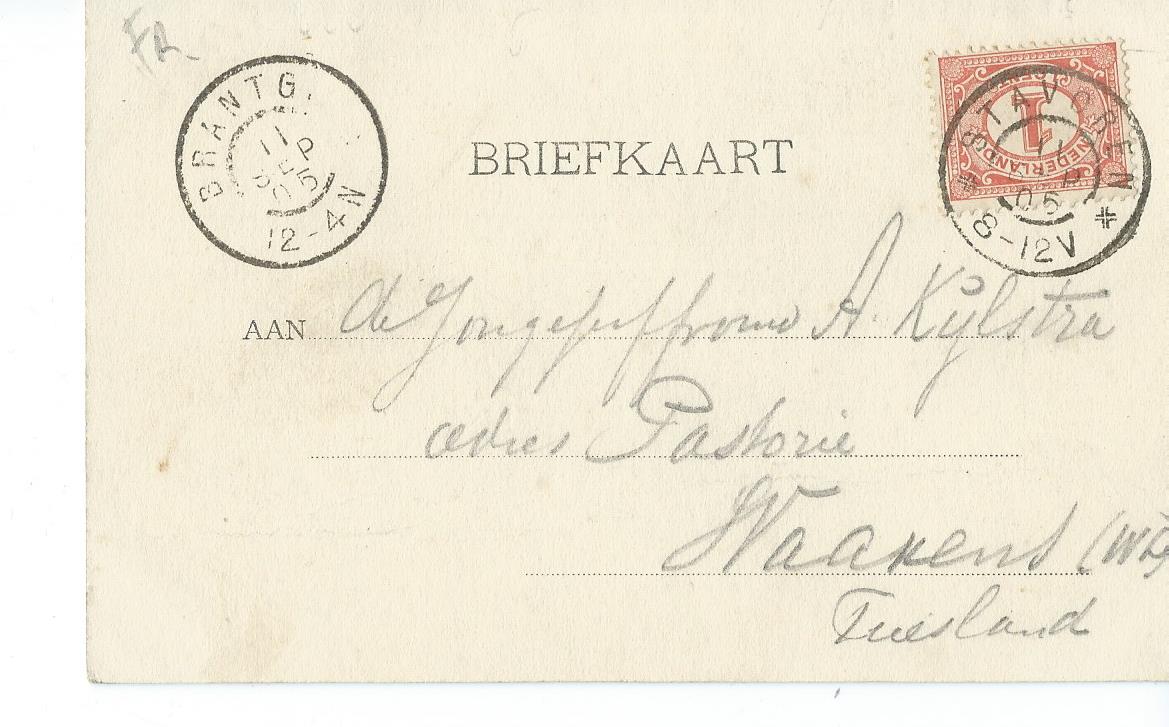 FR
BRANTG.
11
SEP
05
12-4N
BRIEFKAART
1
NEDERLAND
STAVOREN
11
05
8-12V
AAN de Jongejuffrouw A. Kylstra
adres Pastorie
Waaxens (WD
Friesland